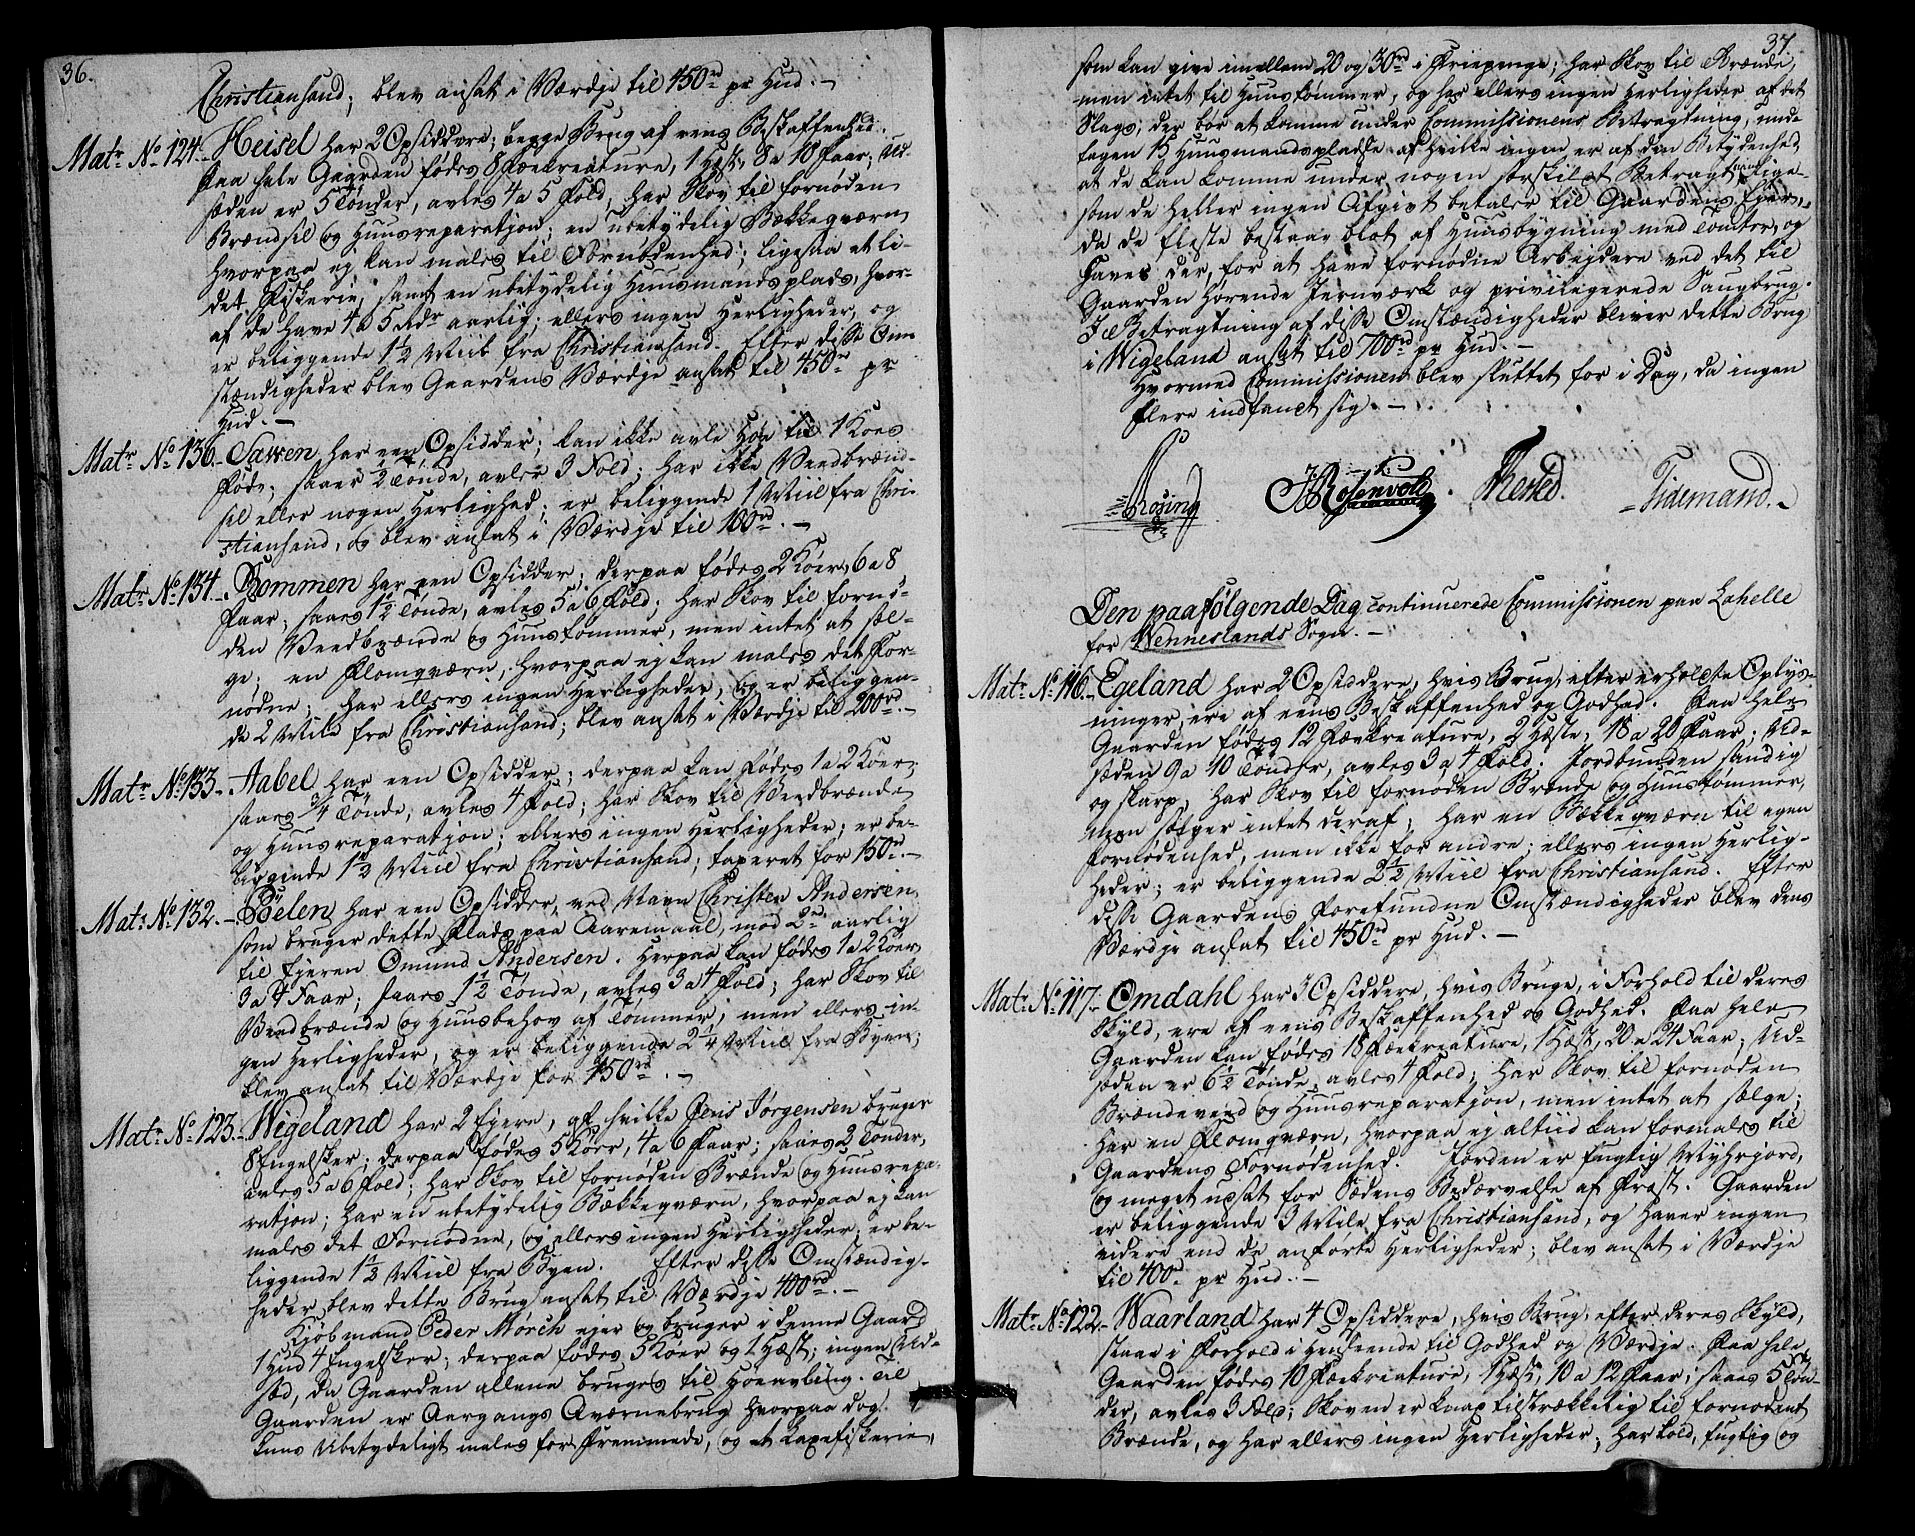 36.
Christiansand; blev ansat i Værdje til 450rd pr Hud. –
Matr. No 124. – Heisel har 2 Opsiddere; begge Brug af eens Beskaffenhed.
Paa hele Gaarden fødes 8 Fækreature, 1 Hæst, 8 a 10 Faar; Ud-
sæden er 5 Tønder, avles 4 a 5 Fold, har Skov til fornøden
Brændsel og Huusreparation; en ubetydelig Bækkeqværn
hvorpaa ej kan males til Fornødenhed; ligesaa et li-
det Fiskerie, samt en ubetydelig Huusmandsplads, hvor-
af de have 4 a 5 Rdr aarlig; ellers ingen Herligheder, og
er beliggende 1½ Miil fra Christiansand. Efter disse Om-
stændigheder blev Gaardens Værdje ansat til 450rd pr
Hud. –
Matr. No 136. – Sawen har een Opsidder; kan ikke avle Høe til 1 Koes
Føde; saaer ½ Tønde, avler 3 Fold; har ikke Veedbrænd-
sel eller nogen Herlighed; er beliggende 1 Miil fra Chri-
stiansand, og blev ansat i Værdje til 100rd. –
Matr. No 134. – Rommen har een Opsidder; derpaa fødes 2 Køer, 6 a 8
Faar; saaes 1½ Tønde, avles 5 a 6 Fold; har Skov til fornø-
den Veedbrænde og Huustømmer, men intet at sæl-
ge; en Flomqværn, hvorpaa ej kan males det For-
nødne; har ellers ingen Herligheder, og er beliggen-
de 2 Mile fra Christiansand; blev ansat i Værdje til 200rd. –
Matr. No 133. – Aabel har een Opsidder; derpaa kan fødes 1 a 2 Køer;
saaes ¾ Tønde, avles 4 Fold; har Skov til Veedbrænde
og Huusreparatjon; ellers ingen Herligheder; er be-
liggende 1½ Miil fra Christiansand; taxeret for 150rd. –
Matr. No 132. – Bøelen har een Opsidder, ved Navn Christen Andersen,
som bruger dette Plads paa Aaremaal, mod 2rd aarlig
til Ejeren Omund Andersen. Herpaa kan fødes 1 a 2 Køer,
3 a 4 Faar; saaes 1½ Tønde, avles 3 a 4 Fold; har Skov til
Veedbrænde og Huusbehov af Tømmer, men ellers in-
gen Herligheder, og er beliggende 2¼ Miil fra Byen;
blev ansat til Værdje for 150rd. –
Matr. No 123. – Wigeland har 2 Ejere, af hvilke Jens Jørgensen bruger
8 Engelsker; derpaa fødes 5 Køer, 4 a 6 Faar; saaes 2 Tønder,
avles 5 a 6 Fold; har Skov til fornøden Brænde og Huusrepa-
ratjon; har en ubetydelig Bækkeqværn, hvorpaa ej kan
males det Fornødne, og ellers ingen Herligheder; er be-
liggende 1½ Miil fra Byen. Efter disse Omstændig-
heder blev dette Brug ansat til Værdje 400rd. –
Kjøbmand Peder Mørch ejer og bruger i denne Gaard
1 Hud 4 Engelsker; derpaa fødes 5 Køer og 1 Hæst; ingen Ud-
sæd, da Gaarden allene bruges til Høeavling. Til
Gaarden er Aargangs Qværnebrug hvorpaa dog
kuns ubetydeligt males for Fremmede, og et Laxefiskerie,
37.
som kan give imellem 20 og 30rd i Friepenge; har Skov til Brænde,
men intet til Huustømmer, og har ellers ingen Herligheder af det
Slags, der bør at komme under Commissionens Betragtning, und-
tagen 15 Huusmandspladse af hvilke ingen er af den Betydenhed
at de kan komme under nogen særskilt Betragtning, lige-
som de heller ingen Afgivt betaler til Gaardens Ejer,
da de fleste bestaae blot af Huusbygning med Tomter, og
haves der, for at have fornødne Arbejdere ved det til
Gaarden hørende Jernværk og privilegerede Saugbrug.
I Betragtning af disse Omstændigheder bliver dette Brug
i Wigeland ansat til 700rd pr Hud. –
Hvormed Commissionen blev sluttet for i Dag, da ingen
flere indfandt sig. –
Rosing JRosenvold. Tidemand. –
Den paafølgende Dag continuerede Commissionen paa Lahelle
for Wenneslands Sogn. –
Matr. No 116. – Egeland har 2 Opsiddere, hvis Brug, efter erholdte Oplys-
ninger, ere af eens Beskaffenhed og Godhed. Paa hele
Gaarden fødes 12 Fækreature, 2 Hæste, 18 a 20 Faar; Ud-
sæden 9 a 10 Tønder, avles 3 a 4 Fold. Jordbunden sandig
og skarp, har Skov til fornøden Brænde og Huustømmer,
men sælger intet deraf; har en Bækkeqværn til egen
Fornødenhed, men ikke for andre; ellers ingen Herlig-
heder; er beliggende 2½ Miil fra Christiansand. Efter
disse Gaardens forefundne Omstændigheder blev dens
Værdje ansat til 450rd pr Hud. –
Matr. No 117. – Omdahl har 3 Opsiddere, hvis Bruge, i Forhold til deres
Skyld, ere af eens Beskaffenhed og Godhed. Paa hele
Gaarden kan fødes 18 Fækreature, 1 Hæst, 20 a 24 Faar; Ud-
sæden er 6½ Tønde, avles 4 Fold; har Skov til fornøden
Brændeveed og Huusreparatjon, men intet at sælge;
har en Flomqværn, hvorpaa ej altiid kan formales til
Gaardens Fornødenhed. Jorden er fugtig Myhrjord,
og meget udsat for Sædens Bedærvelse af Frost. Gaarden
er beliggende 3 Mile fra Christiansand, og haver ingen
videre end de anførte Herligheder; blev ansat i Værdje
til 400rd pr Hud. –
Matr. No 122. – Waarland har 4 Opsiddere, hvis Brug, efter deres Skyld,
staae i Forhold i Henseende til Godhed og Værdje. Paa hele
Gaarden fødes 10 Fækreature, 1 Hæst, 10 a 12 Faar; saaes 5 Tøn-
der, avles 3 Fold; Skoven er knap tilstrækkelig til fornødent
Brænde, og har ellers ingen Herligheder; har kold, fugtig og